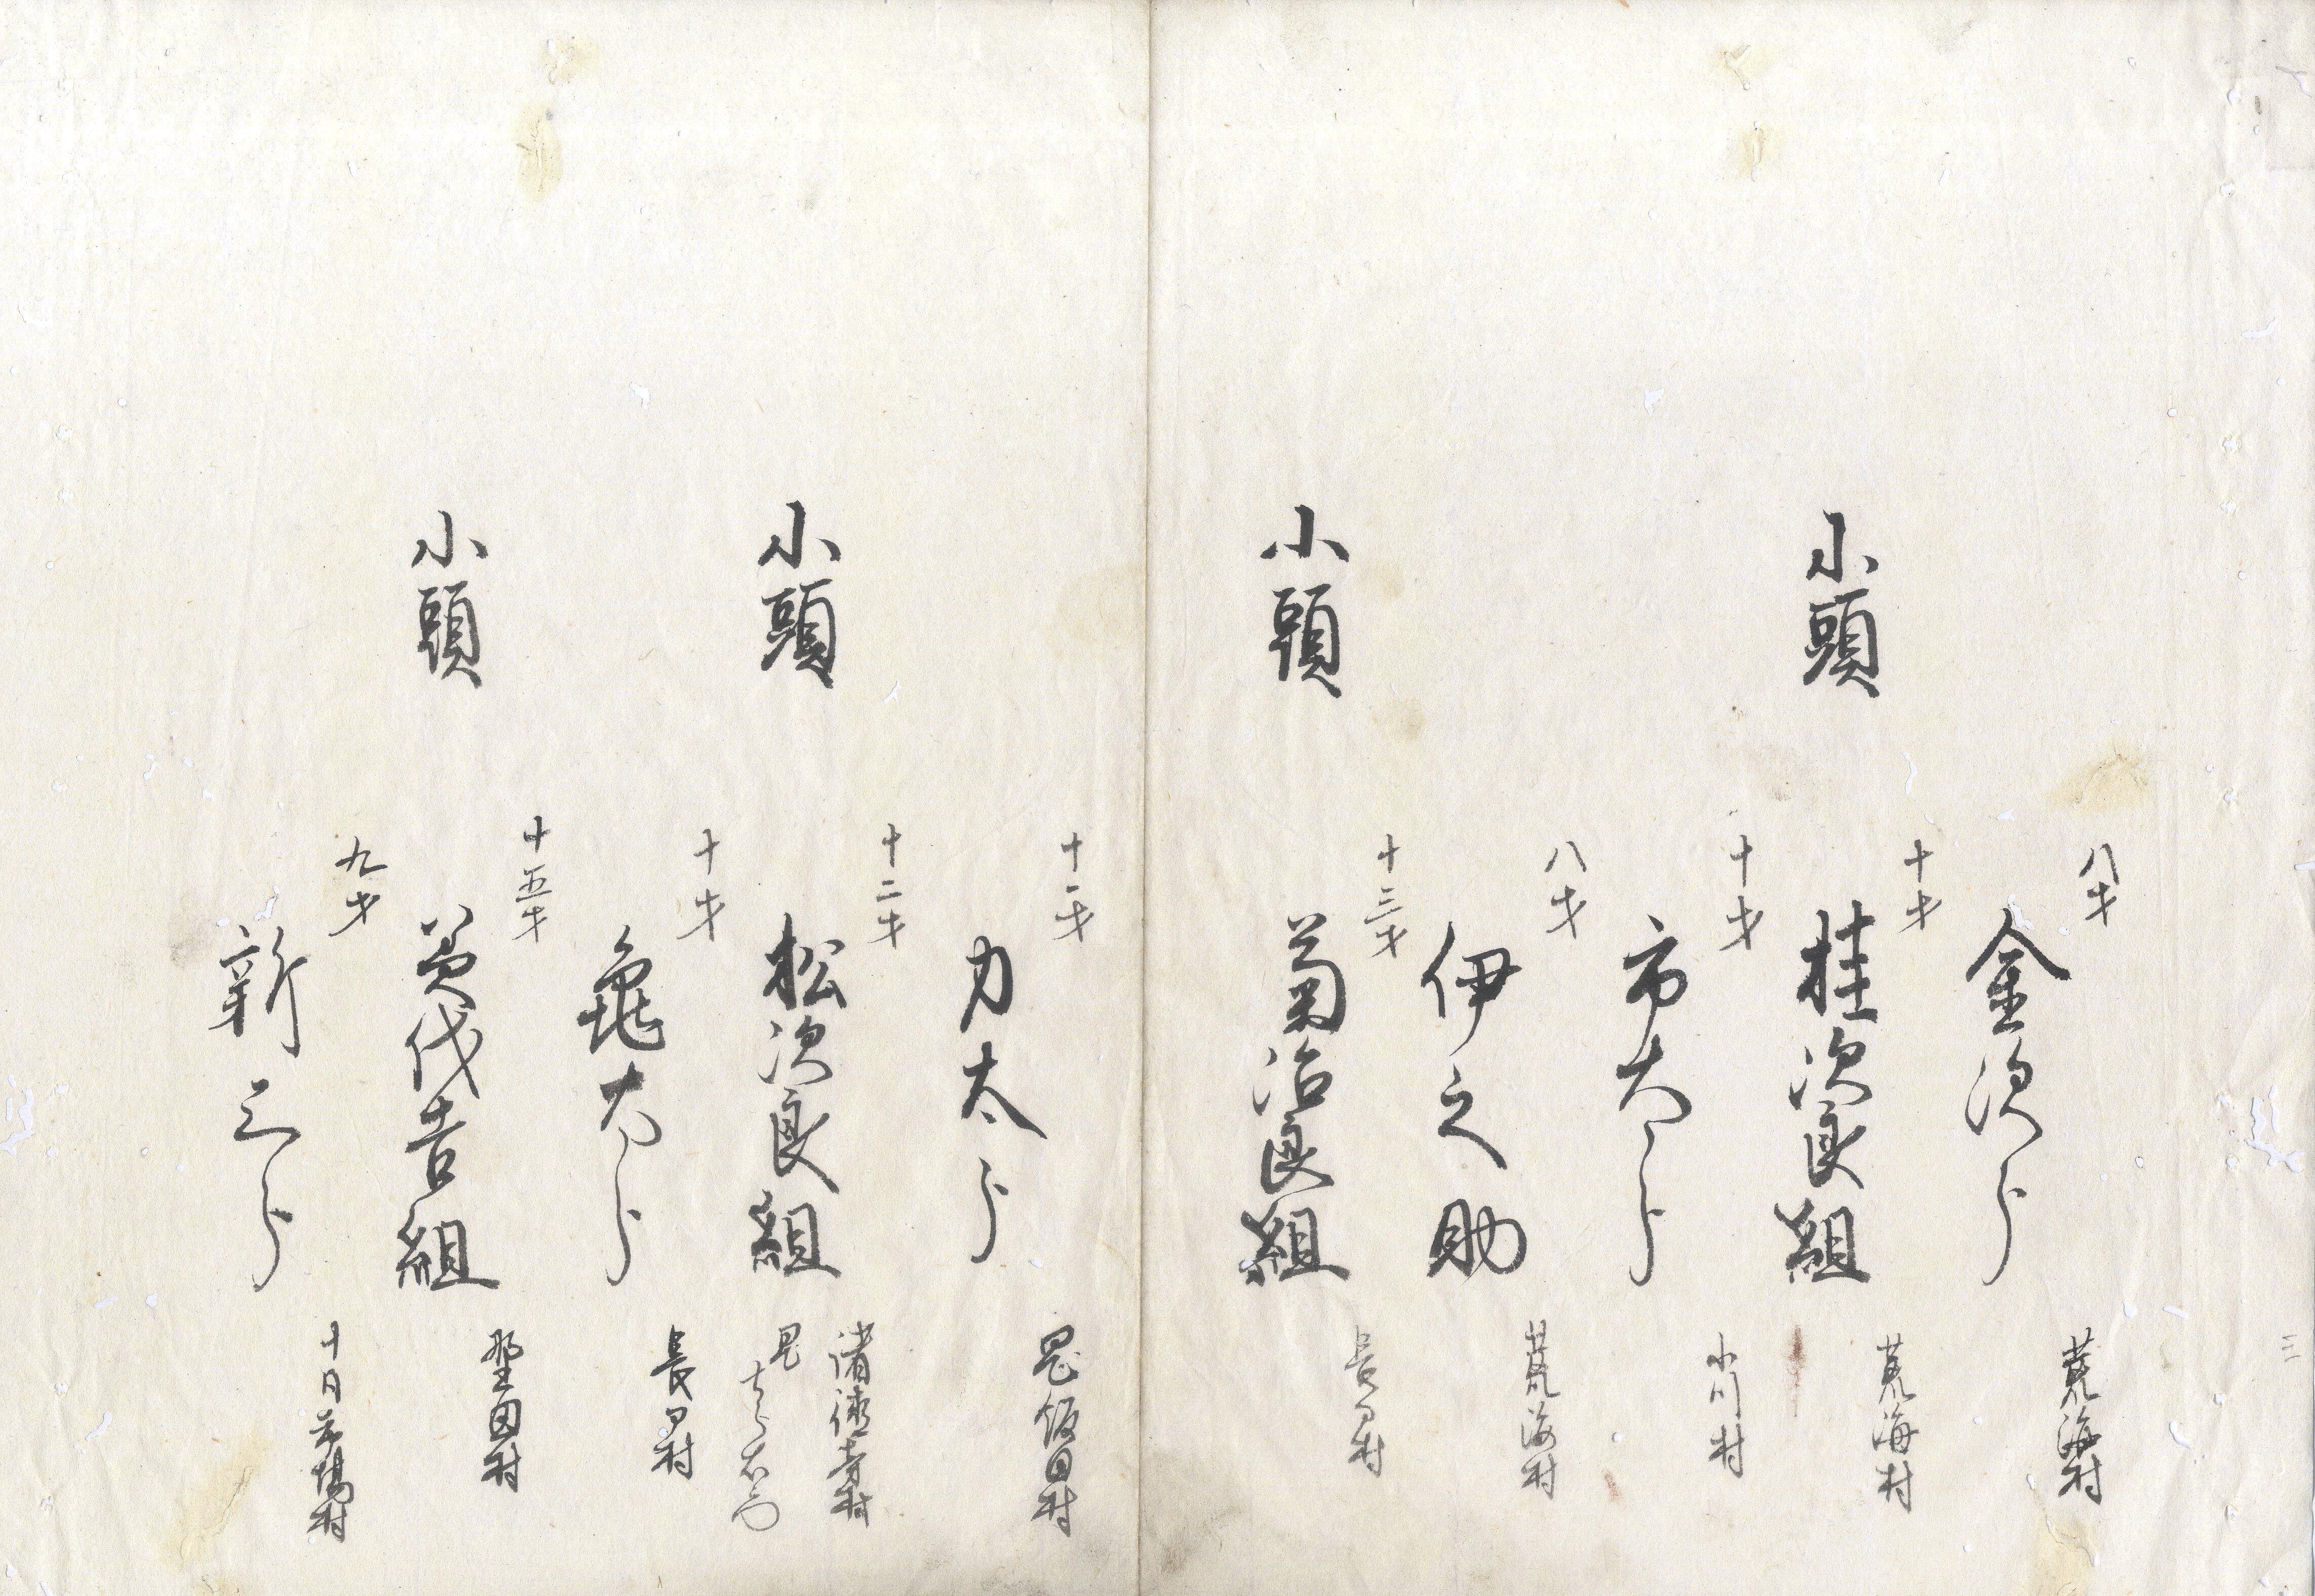 八才
金次郎
荒海村
十才
小頭
桂次良組
荒海村
十才
市太郎
小川村
八才
伊之助
荒海村
十三才
小頭
菊治良組
長
村
十一才
力太郎
飯田村
十二才
小頭
松次良組
村
十才
亀太郎
長
村
十五才
小頭
代吉組
野田村
九才
新三郎
十日市場村